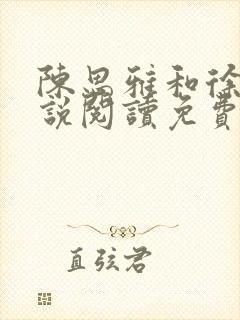 陳思雅和徐
說閱讀免費
直弦君